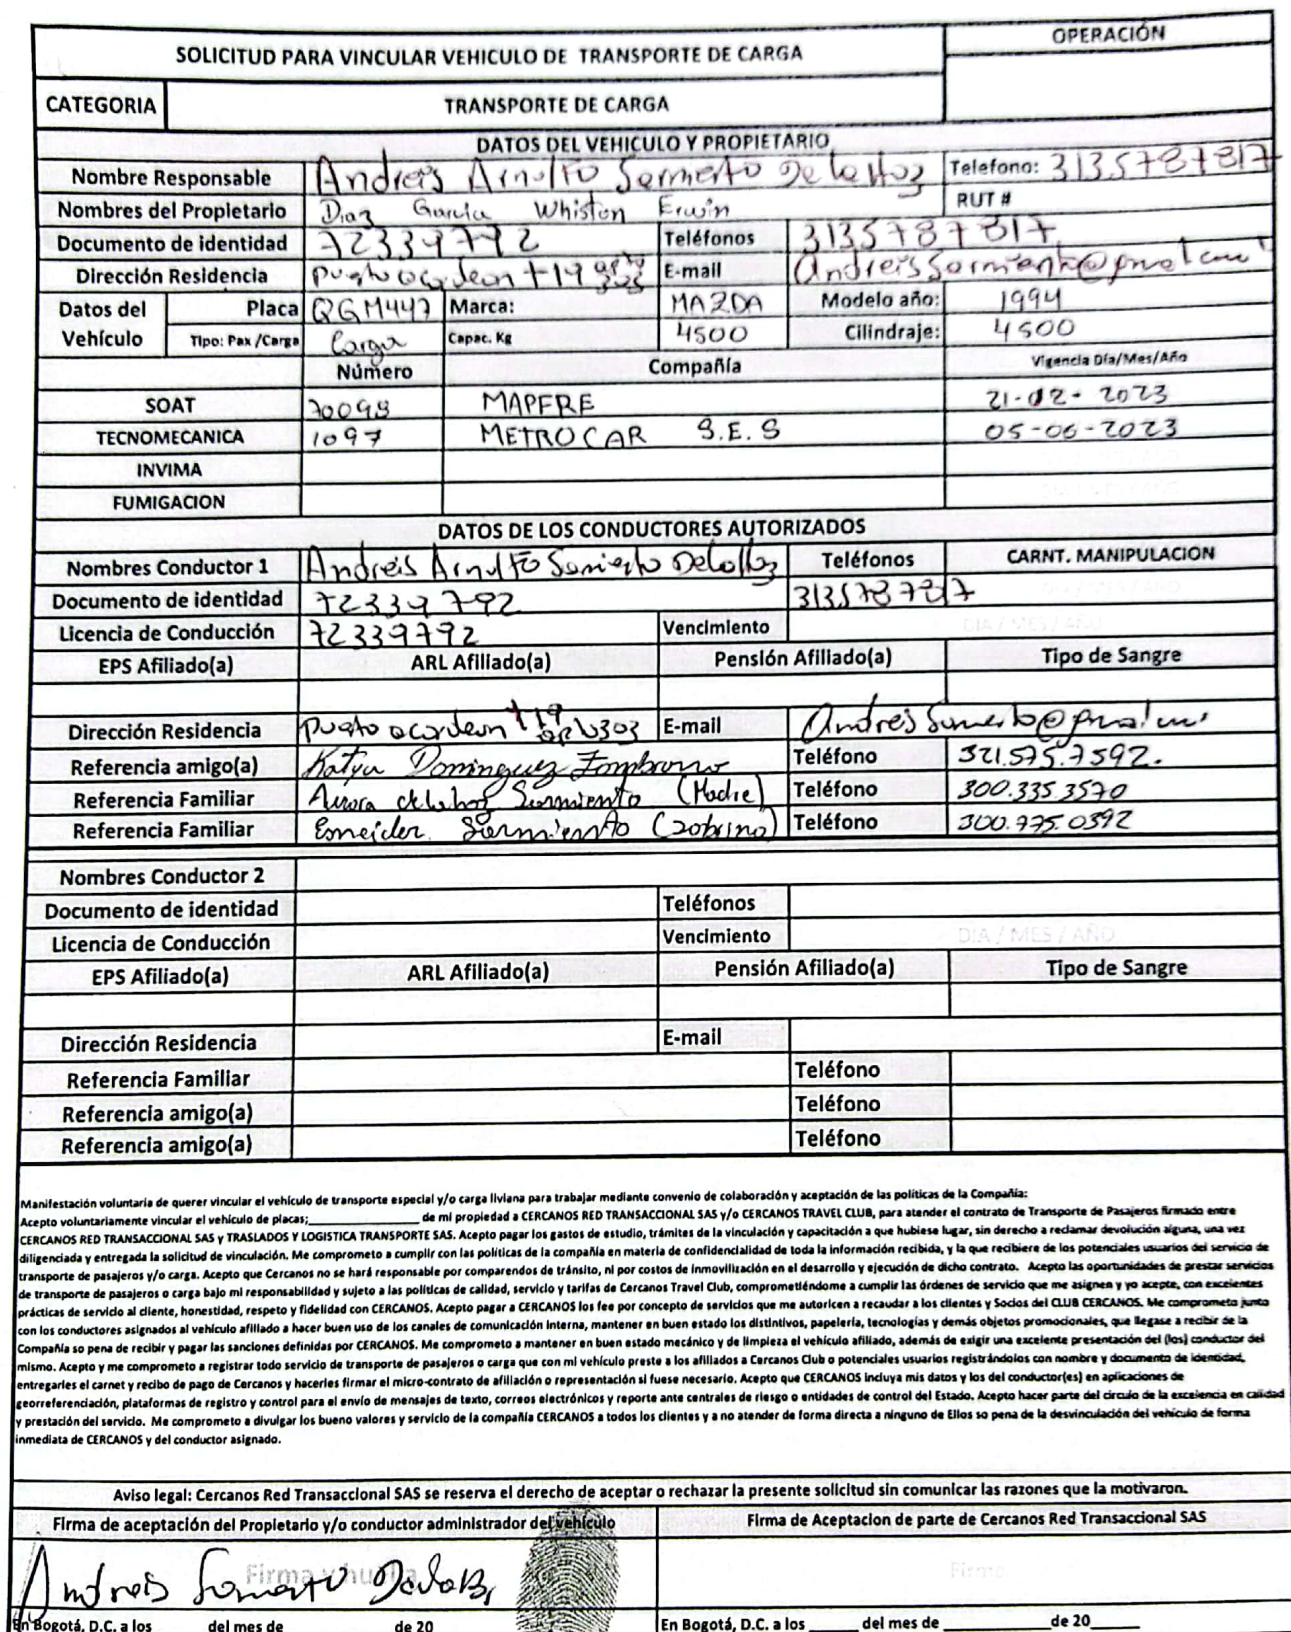 SOLICITUD PARA VINCULAR VEHICULO DE TRANSPORTE DE CARGA
OPERACIÓN
CATEGORIA TRANSPORTE DE CARGA
DATOS DEL VEHICULO Y PROPIETARIO
Nombre Responsable Andreis Arnulfo Sarmiento De la Hoz Telefono: 3135787817
Nombres del Propietario Diaz Garcia Whiston Erwin RUT #
Documento de identidad 72339792 Teléfonos 3135787817
Dirección Residencia E-mail
Datos del Vehículo Placa QGM447 Marca: MAZDA Modelo año: 1994
Tipo: Pax /Carga Carga Capac. Kg 4500 Cilindraje: 4500
Número Compañía Vigencia Día/Mes/Año
SOAT 70098 MAPFRE 21-02-2023
TECNOMECANICA 1097 METROCAR S.E.S 05-06-2023
INVIMA
FUMIGACION
DATOS DE LOS CONDUCTORES AUTORIZADOS
Nombres Conductor 1 Andreis Arnulfo Sarmiento De la Hoz Teléfonos CARNT. MANIPULACION
Documento de identidad 72339792 3135787817
Licencia de Conducción 72339792 Vencimiento DIA / MES / AÑO
EPS Afiliado(a) ARL Afiliado(a) Pensión Afiliado(a) Tipo de Sangre
Dirección Residencia E-mail
Referencia amigo(a) Katya Dominguez Teléfono 321.575.7592.
Referencia Familiar Aurora de la hoz Sarmiento (Madre) Teléfono 300.335.3570
Referencia Familiar Esneider Sarmiento (Sobrino) Teléfono 300.775.0392
Nombres Conductor 2
Documento de identidad Teléfonos
Licencia de Conducción Vencimiento DIA / MES / AÑO
EPS Afiliado(a) ARL Afiliado(a) Pensión Afiliado(a) Tipo de Sangre
Dirección Residencia E-mail
Referencia Familiar Teléfono
Referencia amigo(a) Teléfono
Referencia amigo(a) Teléfono
Manifestación voluntaria de querer vincular el vehículo de transporte especial y/o carga liviana para trabajar mediante convenio de colaboración y aceptación de las políticas de la Compañía:
Acepto voluntariamente vincular el vehículo de placas;________________ de mi propiedad a CERCANOS RED TRANSACCIONAL SAS y/o CERCANOS TRAVEL CLUB, para atender el contrato de Transporte de Pasajeros firmado entre
CERCANOS RED TRANSACCIONAL SAS y TRASLADOS Y LOGISTICA TRANSPORTE SAS. Acepto pagar los gastos de estudio, trámites de la vinculación y capacitación a que hubiese lugar, sin derecho a reclamar devolución alguna, una vez
diligenciada y entregada la solicitud de vinculación. Me comprometo a cumplir con las políticas de la compañía en materia de confidencialidad de toda la información recibida, y la que recibiere de los potenciales usuarios del servicio de
transporte de pasajeros y/o carga. Acepto que Cercanos no se hará responsable por comparendos de tránsito, ni por costos de inmovilización en el desarrollo y ejecución de dicho contrato. Acepto las oportunidades de prestar servicios
de transporte de pasajeros o carga bajo mi responsabilidad y sujeto a las politicas de calidad, servicio y tarifas de Cercanos Travel Club, comprometiéndome a cumplir las órdenes de servicio que me asignen y yo acepte, con excelentes
prácticas de servicio al cliente, honestidad, respeto y fidelidad con CERCANOS. Acepto pagar a CERCANOS los fee por concepto de servicios que me autoricen a recaudar a los clientes y Socios del CLUB CERCANOS. Me comprometo junto
con los conductores asignados al vehículo afiliado a hacer buen uso de los canales de comunicación interna, mantener en buen estado los distintivos, papelería, tecnologías y demás objetos promocionales, que llegase a recibir de la
Compañía so pena de recibir y pagar las sanciones definidas por CERCANOS. Me comprometo a mantener en buen estado mecánico y de limpieza el vehículo afiliado, además de exigir una excelente presentación del (los) conductor del
mismo. Acepto y me comprometo a registrar todo servicio de transporte de pasajeros o carga que con mi vehículo preste a los afiliados a Cercanos Club o potenciales usuarios registrándolos con nombre y documento de identidad,
entregarles el carnet y recibo de pago de Cercanos y hacerles firmar el micro-contrato de afiliación o representación si fuese necesario. Acepto que CERCANOS incluya mis datos y los del conductor(es) en aplicaciones de
georreferenciación, plataformas de registro y control para el envío de mensajes de texto, correos electrónicos y reporte ante centrales de riesgo o entidades de control del Estado. Acepto hacer parte del circulo de la excelencia en calidad
y prestación del servicio. Me comprometo a divulgar los bueno valores y servicio de la compañía CERCANOS a todos los clientes y a no atender de forma directa a ninguno de Ellos so pena de la desvinculación del vehículo de forma
inmediata de CERCANOS y del conductor asignado.
Aviso legal: Cercanos Red Transaccional SAS se reserva el derecho de aceptar o rechazar la presente solicitud sin comunicar las razones que la motivaron.
Firma de aceptación del Propietario y/o conductor administrador del vehículo Firma de Aceptacion de parte de Cercanos Red Transaccional SAS
Firma y huella Firma
Andreis Sarmiento De la Hoz
En Bogotá, D.C. a los ______ del mes de __________ de 20 En Bogotá, D.C. a los ______ del mes de __________ de 20_____